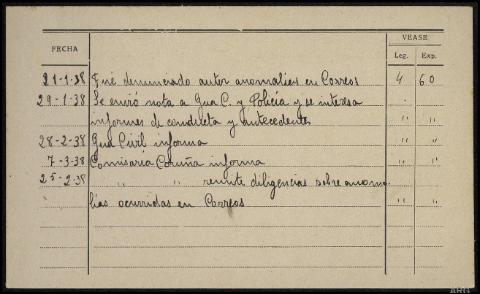 VEASE
FECHA
Leg. Exp.
21-1-38 Fué denunciado autor anomalies en Correos 4 60
29-1-38 Se envió nota a Gua C. y Policía y se interesa
informes de conducta y antecedentes " "
28-2-38 Gua Civil informa " "
7-3-38 Comisaria Coruña informa " "
25-2-38 " " remite diligencias sobre anoma
lías ocurridas en Correos " "